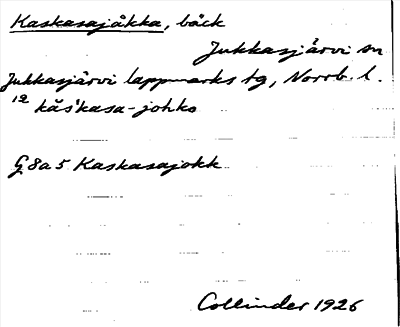 Kaskasajåkka, bäck
Jukkasjärvi sn
Jukkasjärvi lappmarks tg, Norrb. l.
12 kas'kasa-johko
G 8a5 Kaskasajokk
Collinder 1926